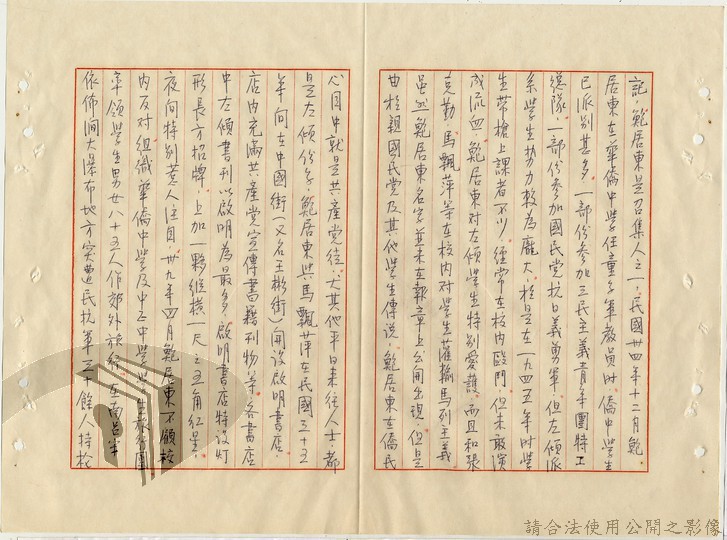 記，鮑居東是召集人之一，民國卅四年十二月鮑
居東在華僑中學任童子軍教員時，僑中學生
已派別甚多，一部份參加三民主義青年團特工
總隊，一部份參加國民党抗日義勇軍，但左傾派
系學生勢力較為龐大，於是在一九四五年時學
生帶槍上課者不少，經常在校內毆鬥，但未敢演
成流血，鮑居東對左傾學生特別愛護，而且和張
克勤、馬飄萍等在校內對學生灌輸馬列主義，
虽然鮑居東名字並未在報章上公開出現，但是
由於親國民党及其他學生傳說，鮑居東在僑民
心目中就是共產党徒，尤其他平日來往人士，都
是左傾份子，鮑居東與馬飄萍在民國三十五
年向在中國街（又名王彬街）開設啟明書店，
店內充滿共產党宣傳書籍刊物，並各書店
中左傾書刊以啟明為最多，啟明書店特設灯
形長方招牌，上加一夥縱橫一尺之五角紅星，
夜间特別惹人注目，卅九年四月鮑居東不顧校
內反对組織華僑中學及中正中學學生旅行團
率領學生男女八十五人作郊外旅行，在南呂宋
依佈间大瀑布地方突遭民抗軍三十餘人持枪
請合法使用公開之影像